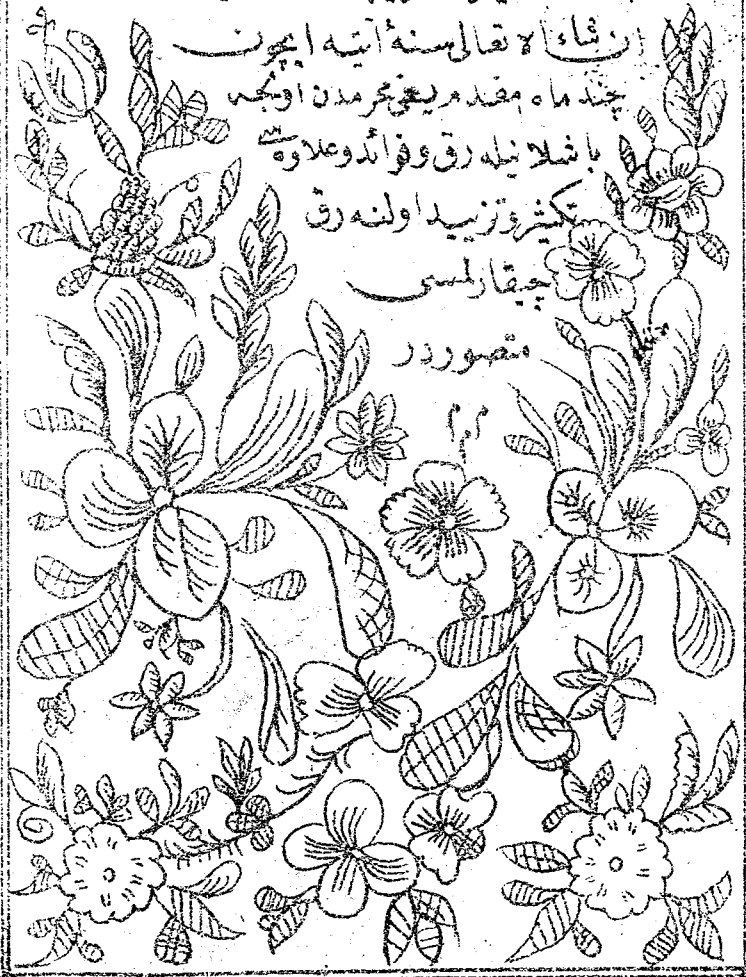 ان شاء الله تعالى سنۀ آتیه ایچون
چند ماه مقدم یعنی محرمدن اونجه
باشلانیله رق و فوائد و علاوه سی
تکثیر و تزیید اولنه رق
چیقارلمسی
متصوردر
م م م